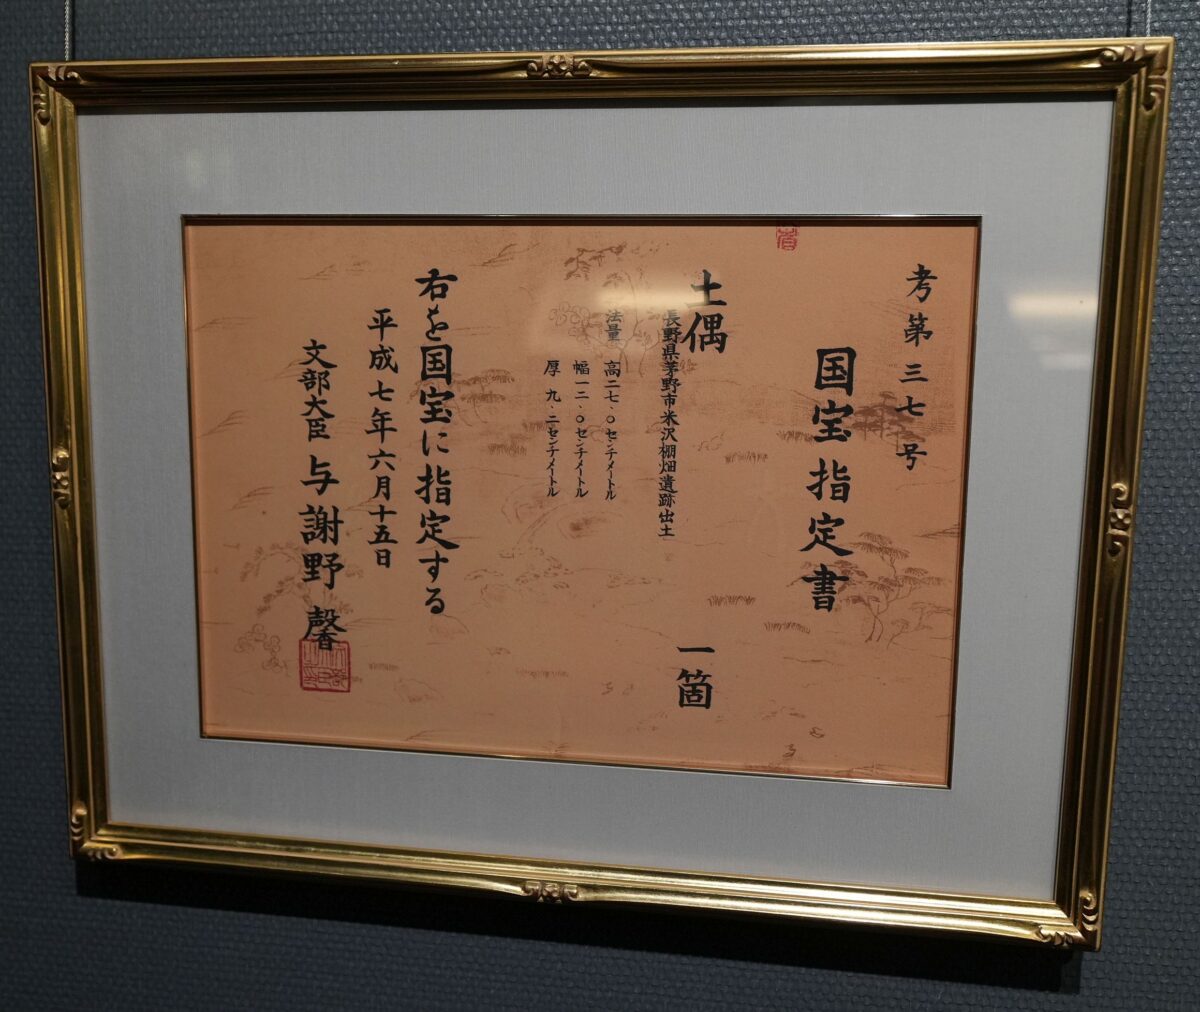 考第三七号
国宝指定書
土偶 一箇
長野県茅野市米沢棚畑遺跡出土
法量 高二七・〇センチメートル
幅一二・〇センチメートル
厚九・二センチメートル
右を国宝に指定する
平成七年六月十五日
文部大臣 与謝野 馨